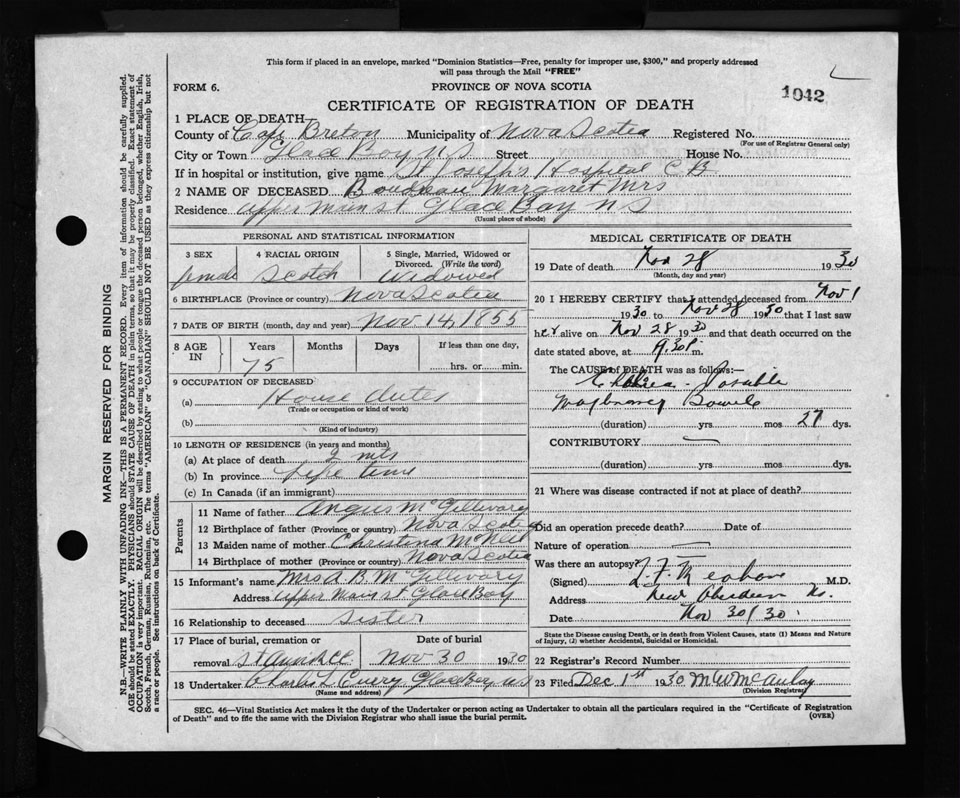 This form if placed in an envelope, marked "Dominion Statistics—Free, penalty for improper use, $300," and properly addressed
will pass through the Mail "FREE"
FORM 6.
PROVINCE OF NOVA SCOTIA
1042
CERTIFICATE OF REGISTRATION OF DEATH
1 PLACE OF DEATH—
County of Cape Breton Municipality of Nova Scotia Registered No.
(For use of Registrar General only)
City or Town Glace Bay N S Street House No.
If in hospital or institution, give name St Joseph's Hospital C B
2 NAME OF DECEASED Boudreau Margaret Mrs
Residence Upper Main st Glace Bay N S
(Usual place of abode)
PERSONAL AND STATISTICAL INFORMATION
3 SEX female
4 RACIAL ORIGIN Scotch
5 Single, Married, Widowed or Divorced. (Write the word) Widowed
6 BIRTHPLACE (Province or country) Nova Scotia
7 DATE OF BIRTH (month, day and year) Nov. 14, 1855
8 AGE IN Years Months Days If less than one day,
75 hrs. or min.
9 OCCUPATION OF DECEASED
(a) House duties
(Trade or occupation or kind of work)
(b)
(Kind of industry)
10 LENGTH OF RESIDENCE (in years and months)
(a) At place of death 2 mts
(b) In province life time
(c) In Canada (if an immigrant)
Parents
11 Name of father Angus McGillivary
12 Birthplace of father (Province or country) Nova Scotia
13 Maiden name of mother Christina McNeil
14 Birthplace of mother (Province or country) Nova Scotia
15 Informant's name Mrs A. B. McGillivary
Address Upper Main st Glace Bay
16 Relationship to deceased Sister
17 Place of burial, cremation or removal Date of burial
Nov 30 1930
18 Undertaker Charles L Glace Bay, N S
(Name and address)
MEDICAL CERTIFICATE OF DEATH
19 Date of death Nov 28 1930
(Month, day and year)
20 I HEREBY CERTIFY that I attended deceased from Nov 1
1930 to Nov 28 1930 that I last saw
her alive on Nov 28 1930 and that death occurred on the
date stated above, at 9.30 P. m.
The CAUSE of DEATH was as follows:—
Possible
Bowels
(duration) yrs. mos 27 dys.
CONTRIBUTORY
(duration) yrs. mos. dys.
21 Where was disease contracted if not at place of death?
Did an operation precede death? Date of
Nature of operation
Was there an autopsy?
(Signed) M.D.
Address New Aberdeen
Date Nov 30/30
State the Disease causing Death, or in death from Violent Causes, state (1) Means and Nature
of Injury, (2) whether Accidental, Suicidal or Homicidal.
22 Registrar's Record Number
23 Filed Dec 1st 1930 M W McAulay
(Division Registrar)
SEC. 46—Vital Statistics Act makes it the duty of the Undertaker or person acting as Undertaker to obtain all the particulars required in the "Certificate of Registration
of Death" and to file the same with the Division Registrar who shall issue the burial permit.
(OVER)
MARGIN RESERVED FOR BINDING
N.B.—WRITE PLAINLY WITH UNFADING INK—THIS IS A PERMANENT RECORD. Every item of information should be carefully supplied.
AGE should be stated EXACTLY. PHYSICIANS should STATE CAUSE OF DEATH in plain terms, so that it may be properly classified. Exact statement of
OCCUPATION is very important. RACIAL ORIGIN will be described by stating to what people or tongue the deceased person belonged, whether English, Irish,
Scotch, French, German, Russian, Ruthenian, etc. The terms "AMERICAN" or "CANADIAN" SHOULD NOT BE USED as they express citizenship but not
a race or people. See instructions on back of Certificate.